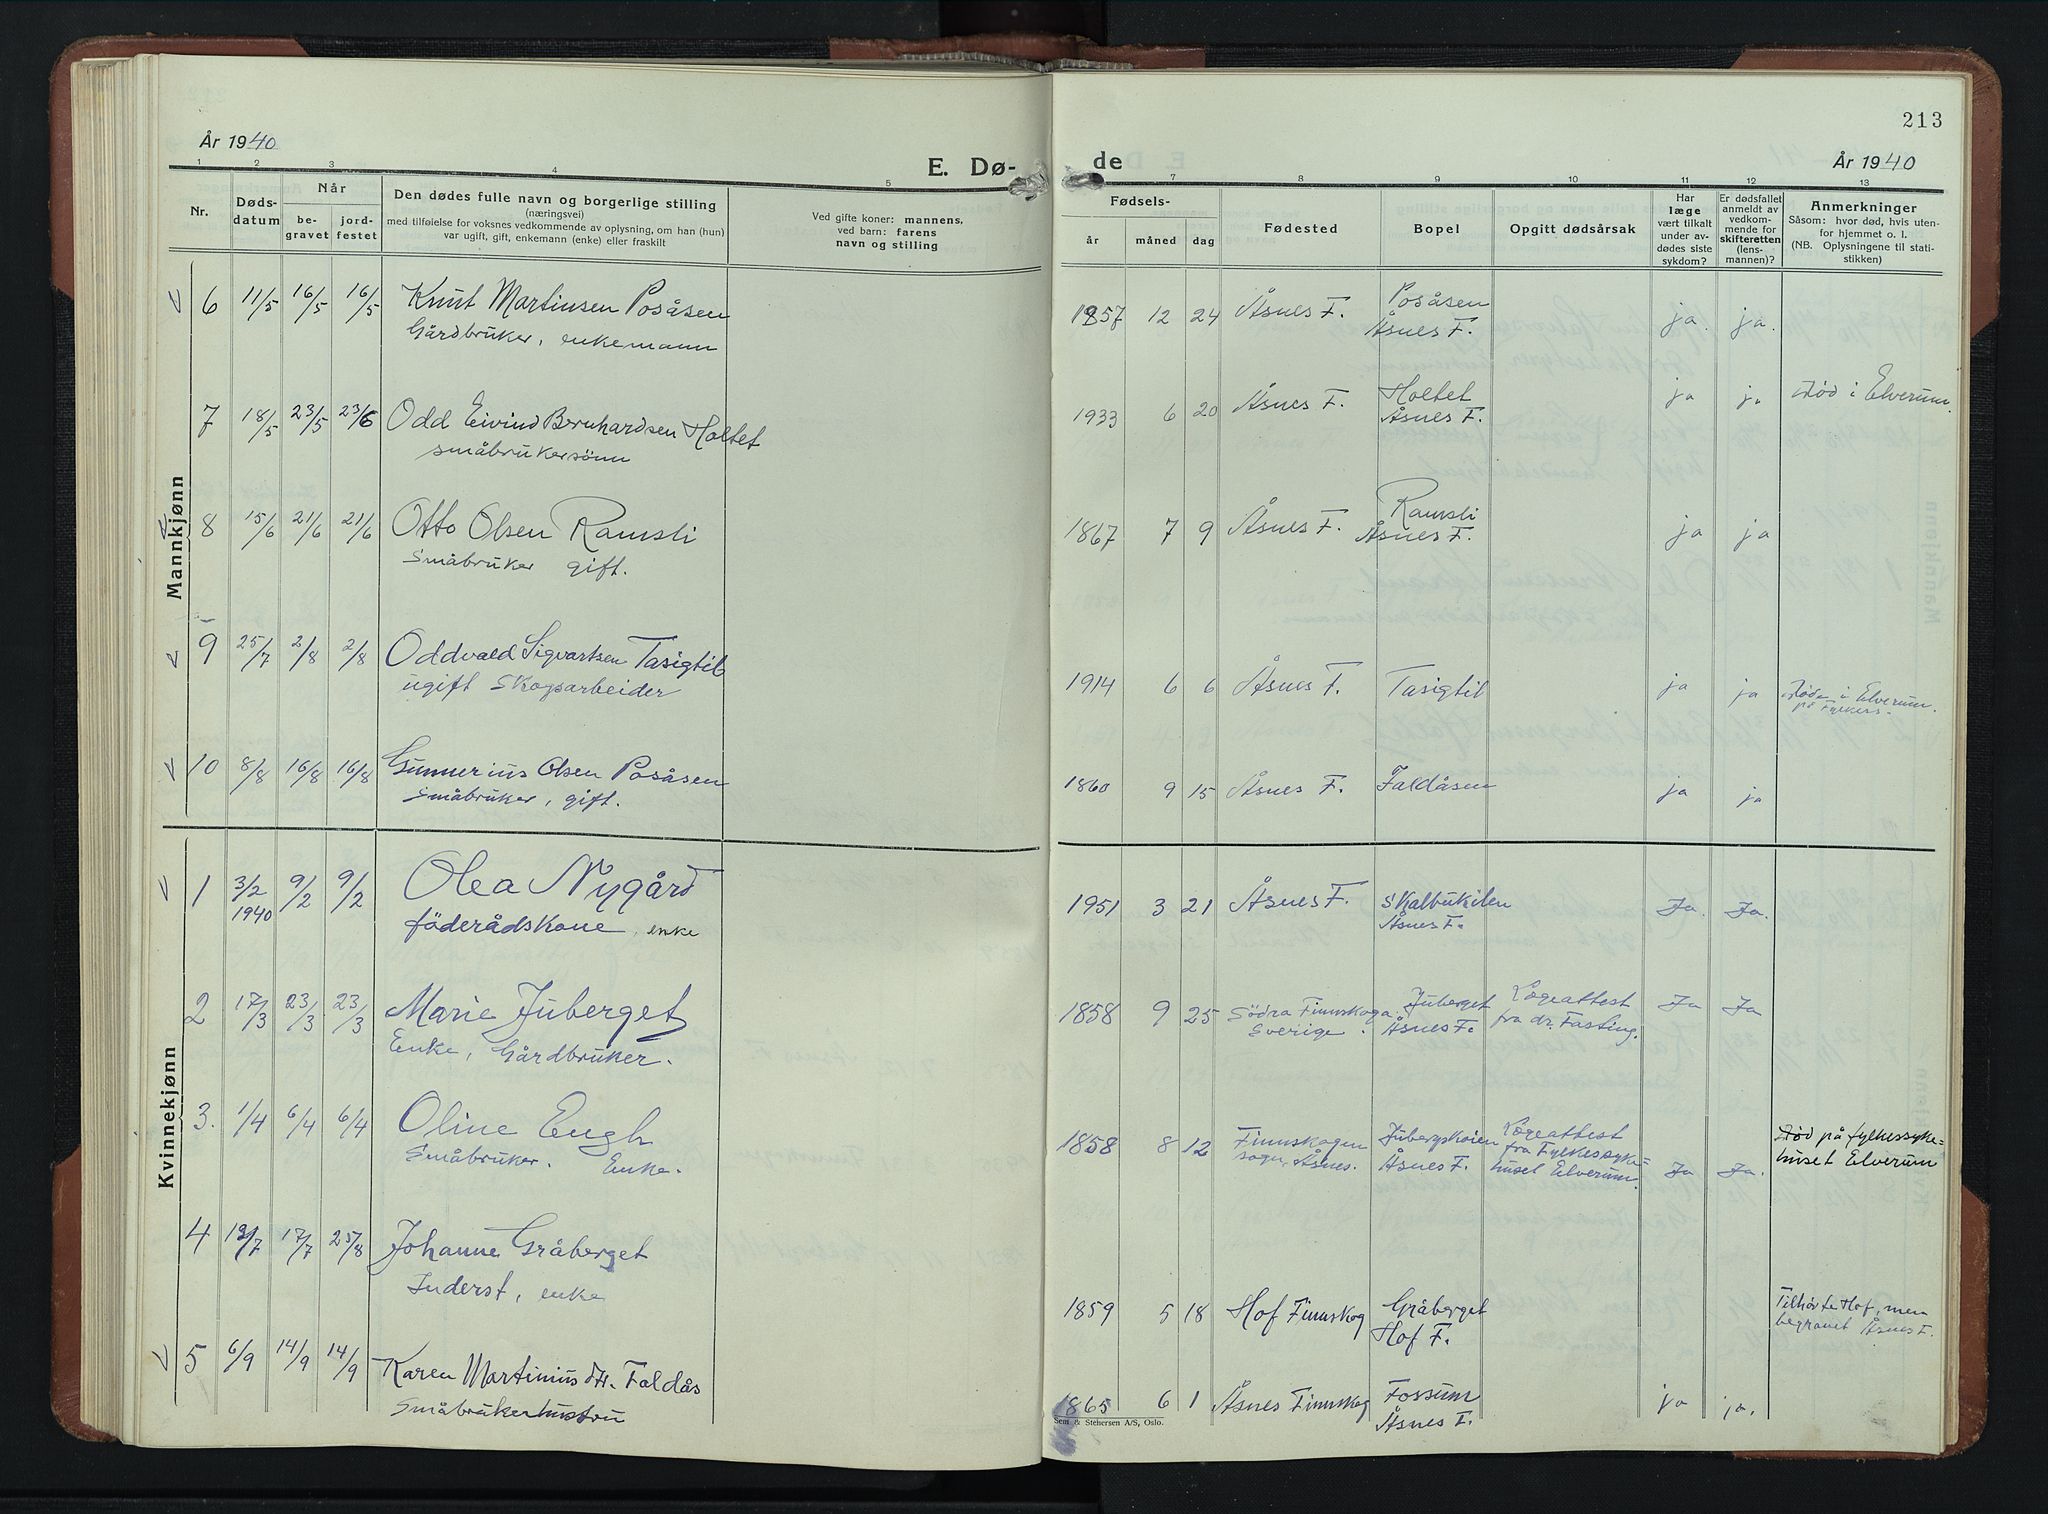 213
År 1940
E. Dø-
de
År 1940
1 2 3 4 5 7 8 9 10 11 12 13
Nr.
Døds-
datum
Når
be-
gravet
jord-
festet
Den dødes fulle navn og borgerlige stilling
(næringsvei)
med tilføielse for voksnes vedkommende av oplysning, om han (hun)
var ugift, gift, enkemann (enke) eller fraskilt
Ved gifte koner: mannens,
ved barn: farens
navn og stilling
Fødsels-
år måned dag
Fødested
Bopel
Opgitt dødsårsak
Har
læge
vært tilkalt
under av-
dødes siste
sykdom?
Er dødsfallet
anmeldt av
vedkom-
mende for
skifteretten
(lens-
mannen)?
Anmerkninger
Såsom: hvor død, hvis uten-
for hjemmet o. l.
(NB. Oplysningene til stati-
stikken)
Mannkjønn
6 11/5 16/5 16/5 Knut Martinsen Posåsen
Gårdbruker, enkemann
1857 12 24 Åsnes F. Posåsen
Åsnes F. ja. ja.
7 18/5 23/5 23/6 Odd Eivind Bernhardsen Holtet
småbrukersönn
1933 6 20 Åsnes F. Holtet
Åsnes F. ja ja Död i Elverum.
8 15/6 21/6 21/6 Otto Olsen Ramsli
Småbruker gift.
1867 7 9 Åsnes F. Ramsli
Åsnes F. ja ja
9 25/7 2/8 2/8 Oddvald Sigvartsen Tasigtil
ugift Skogsarbeider
1914 6 6 Åsnes F. Tasigtil ja ja Döde i Elverum.
på Fylkess.
10 8/8 16/8 16/8 Gunnerius Olsen Posåsen
Småbruker, gift.
1860 9 15 Åsnes F. Faldåsen ja ja
Kvinnekjønn
1 3/2 9/2 9/2 Olea Nygård
1940 föderådskone, enke
1951 3 21 Åsnes F. Skalbukilen
Åsnes F. Ja. Ja.
2 17/3 23/3 23/3 Marie Juberget
Enke, Gårdbruker.
1858 9 25 Södra Finnskoga Juberget Lögeattest Ja Ja
Sverige. Åsnes F. fra dr. Fasting.
3. 1/4 6/4 6/4 Oline Engh
Småbruker. Enke.
1858 8 12 Finnskogen Jubergskoien Lögeattest Död på fylkessyke-
sogn, Åsnes. Åsnes F. fra Fylkessyke- Ja Ja. huset Elverum
huset Elverum.
4 12/7 17/7 25/8 Johanne Gråberget
Inderst, enke
1859 5 18 Hof Finnskog Gråberget Tilhörte Hof, men
Hof F. begravet Åsnes F.
5 6/9 14/9 14/9 Karen Martinius dtr. Faldås
Småbrukerhustru
1865 6 1 Åsnes Finnskog Fossum ja ja.
Åsnes F.
Sem & Stenersen A/S, Oslo.